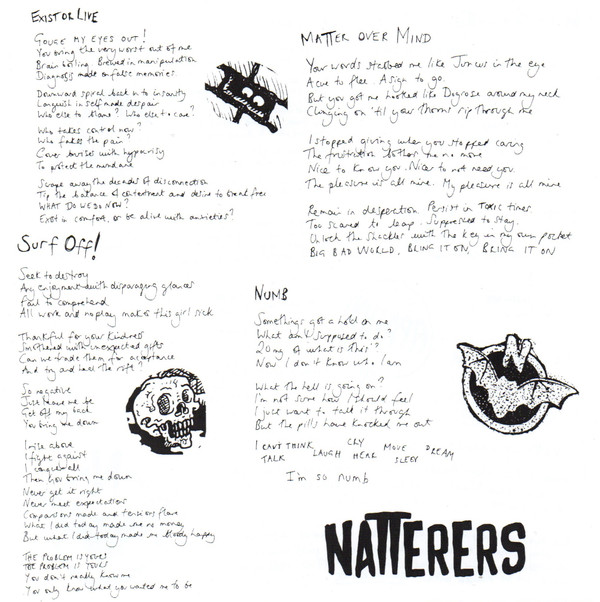 EXIST OR LIVE
GOUGE MY EYES OUT!
You bring the very worst out of me
Brain boiling. Brewed in manipulation
Diagnosis made on false memories.
Downward spiral back into insanity
Languish in self made despair
Who else to blame? Who else to care?
Who takes control now?
Who fakes the pain?
Cover bruises with hypocrisy
To protect the mundane
Scrape away the decades of disconnection
Tip the balance of contentment and desire to break free
WHAT DO WE DO NOW?
Exist in comfort, or be alive with anxieties?
SURF OFF!
Seek to destroy
Any enjoyment with disparaging glances
Fail to comprehend
All work and no play makes this girl sick
Thankful for your kindness
Smothered with unexpected gifts
Can we trade them for acceptance
And try and heal the rift?
So negative
Just leave me be
Get off my back
You bring me down
I rise above
I fight against
I conquer all
Then you bring me down
Never get it right
Never meet expectations
Comparisons made and tensions flare
What I did today made me no money
But what I did today made me bloody happy
THE PROBLEM IS YOURS
THE PROBLEM IS YOURS
You don't really know me
You only know what you wanted me to be
MATTER OVER MIND
Your words stabbed me like Juncus in the eye
A cue to flee. A sign to go.
But you got me hooked like Dogrose around my neck
Clinging on 'til your thorns rip through me
I stopped giving when you stopped caring
The frustration bothers me no more
Nice to know you. Nice to not need you.
The pleasure is all mine. My pleasure is all mine
Remain in desperation. Persist in TOXIC times
Too scared to leap. Suppressed to stay
Unlock the shackles with the key in my own pocket
BIG BAD WORLD, BRING IT ON, BRING IT ON
NUMB
Somethings got a hold on me
What am I supposed to do?
20mg of what is this?
Now I don't know who I am
What the hell is going on?
I'm not sure how I should feel
I just want to talk it through
But the pills have knocked me out
I CAN'T THINK CRY MOVE DREAM
TALK LAUGH HEAR SLEEP
I'm so numb
N
NATTERERS